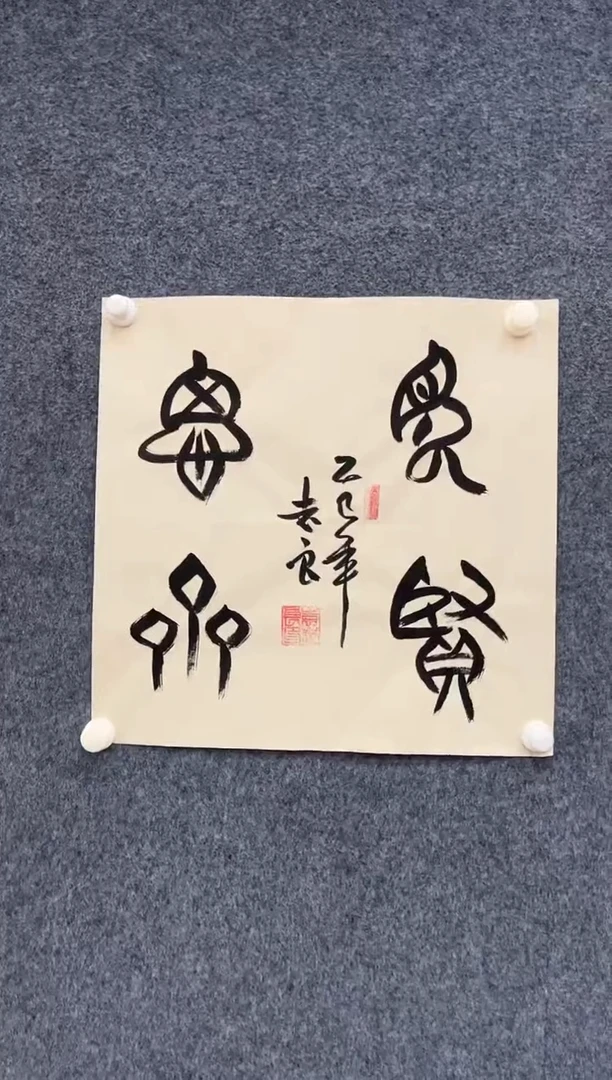 見賢
思齊
乙巳年
良